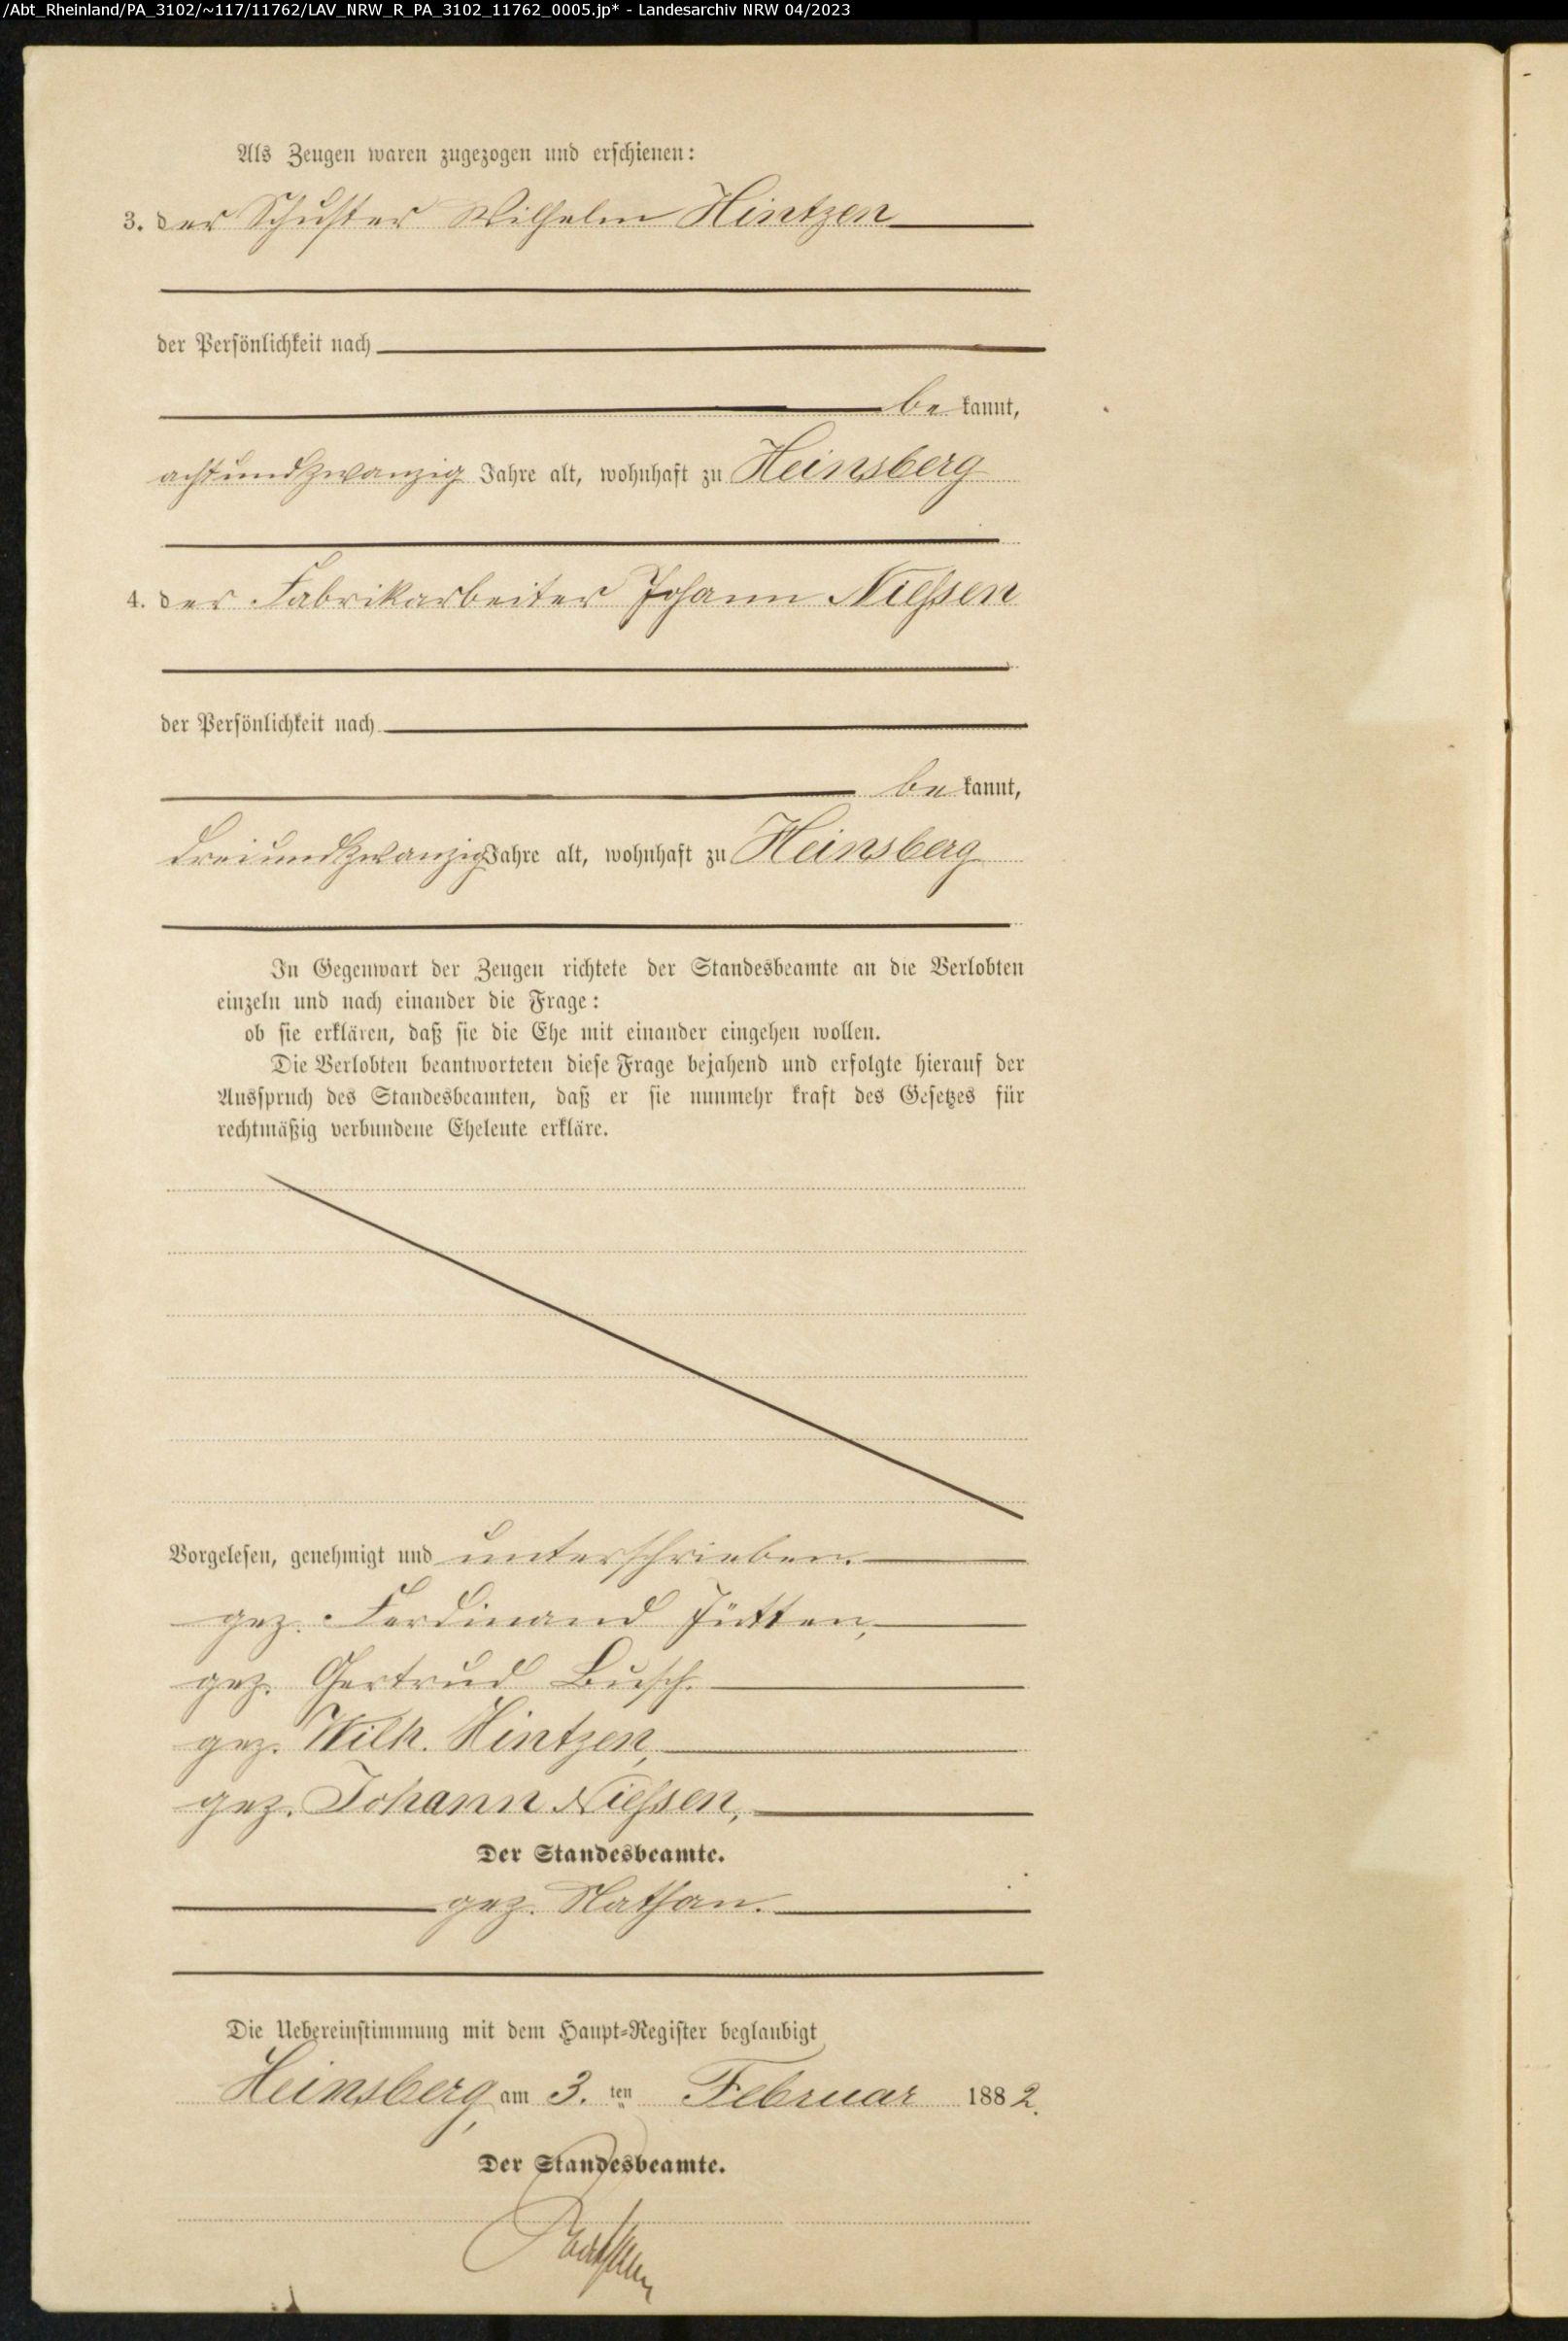 /Abt_Rheinland/PA_3102/~117/11762/LAV_NRW_R_PA_3102_11762_0005.jp* - Landesarchiv NRW 04/2023
Als Zeugen waren zugezogen und erschienen:
3. der Schuster Wilhelm Hintzen
der Persönlichkeit nach
be kannt,
achtundzwanzig Jahre alt, wohnhaft zu Heinsberg
4. der Fabrikarbeiter Johann Nießen
der Persönlichkeit nach
be kannt,
dreiundzwanzig Jahre alt, wohnhaft zu Heinsberg
In Gegenwart der Zeugen richtete der Standesbeamte an die Verlobten
einzeln und nach einander die Frage:
ob sie erklären, daß sie die Ehe mit einander eingehen wollen.
Die Verlobten beantworteten diese Frage bejahend und erfolgte hierauf der
Ausspruch des Standesbeamten, daß er sie nunmehr kraft des Gesetzes für
rechtmäßig verbundene Eheleute erkläre.
Vorgelesen, genehmigt und unterschrieben.
gez. Ferdinand Jütten,
gez. Gertrud Busch.
gez. Wilh. Hintzen,
gez. Johann Nießen,
Der Standesbeamte.
gez. Nathan.
Die Uebereinstimmung mit dem Haupt-Register beglaubigt
Heinsberg, am 3. ten Februar 1882.
Der Standesbeamte.
Nathan